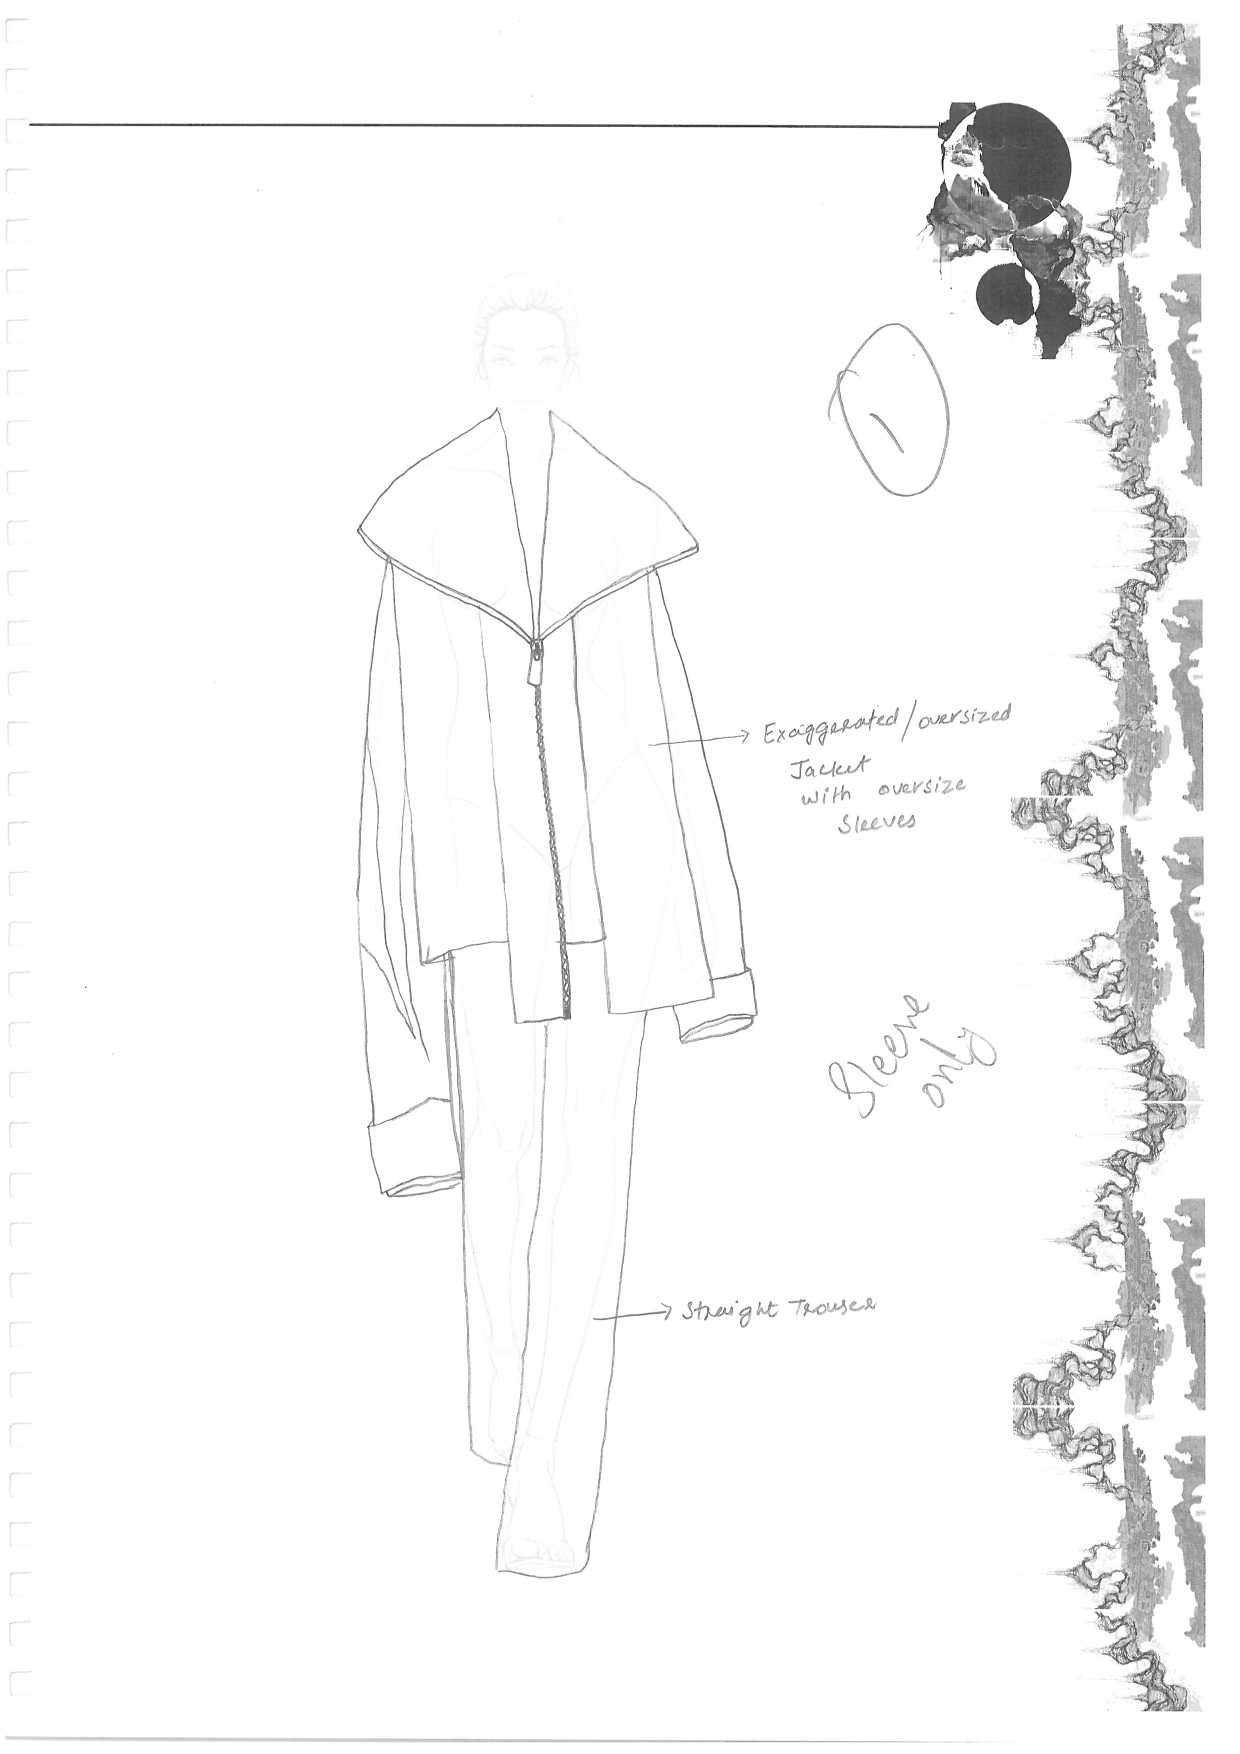 Exaggerated/oversized
Jacket
with oversize
Sleeves
Sleeve
only
Straight Trouser